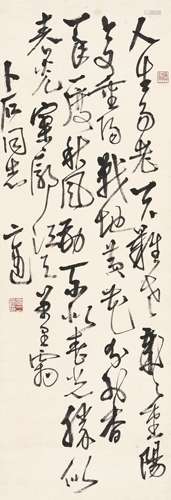 人生易老天難老歲〻重陽
今又重陽戰地黃花分外香
一年一度秋風勁不似春光勝似
春光寥廓江天萬里霜
卜石同志